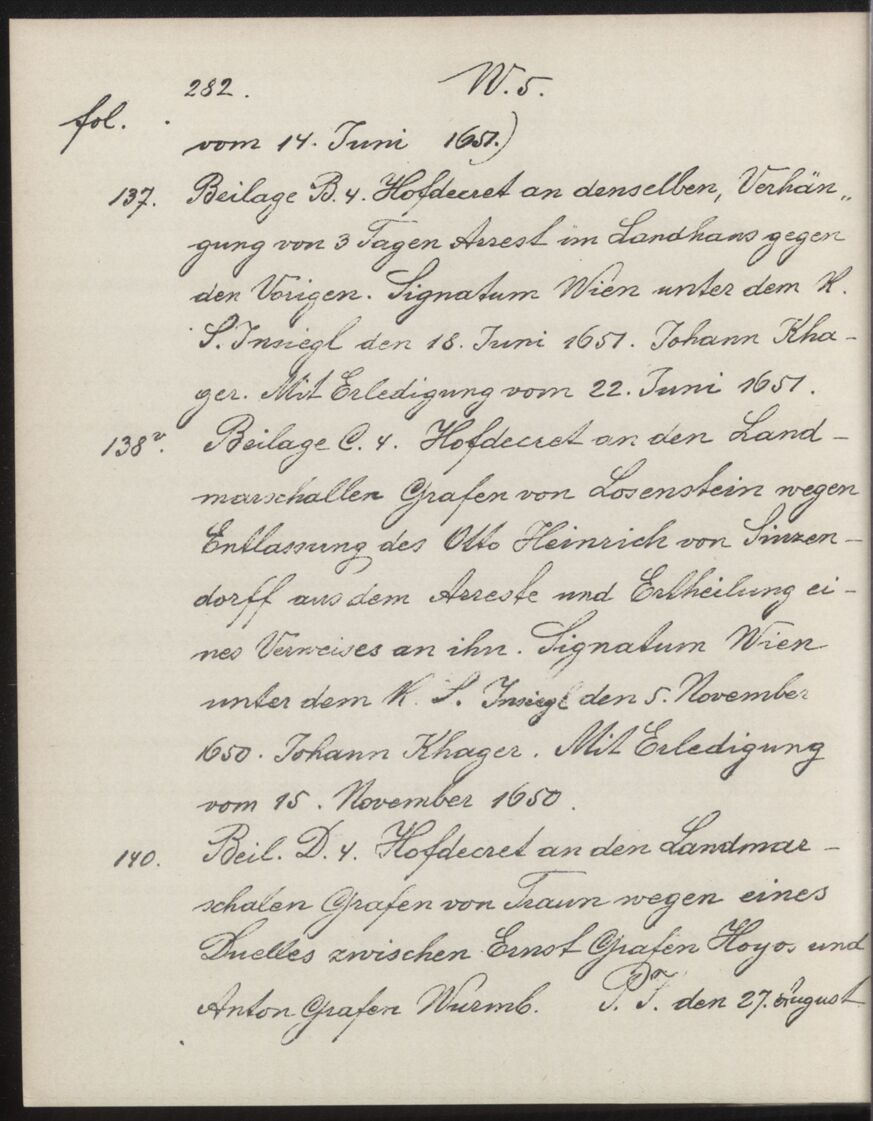 282. W. 5.
fol.
vom 14. Juni 1651.)
137. Beilage B. 4. Hofdecret an denselben, Verhän„
gung von 3 Tagen Arrest im Landhaus gegen
den Vorigen. Signatum Wien unter dem K.
S. Insiegl den 18. Juni 1651. Johann Kha-
ger. Mit Erledigung vom 22. Juni 1651.
138v. Beilage C. 4. Hofdecret an den Land-
marschallen Grafen von Losenstein wegen
Entlassung des Otto Heinrich von Sinzen-
dorff aus dem Arreste und Ertheilung ei-
nes Verweises an ihn. Signatum Wien
unter dem K. S. Insiegl den 5. November
1650. Johann Khager. Mit Erledigung
vom 15. November 1650.
140. Beil. D. 4. Hofdecret an den Landmar-
schalen Grafen von Traun wegen eines
Duelles zwischen Ernst Grafen Hoyos und
Anton Grafen Wurmb. den 27. August